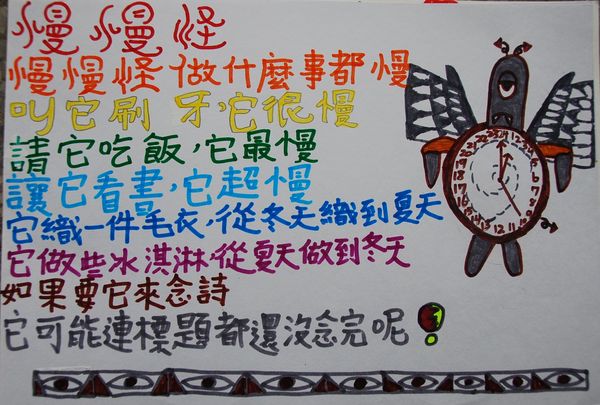 慢慢怪
慢慢怪做什麼事都慢
叫它刷 牙,它很慢
請它吃飯,它最慢
讓它看書,它超慢
它織一件毛衣,從冬天織到夏天
它做些冰淇淋,從夏天做到冬天
如果要它來念詩
它可能連標題都還沒念完呢!